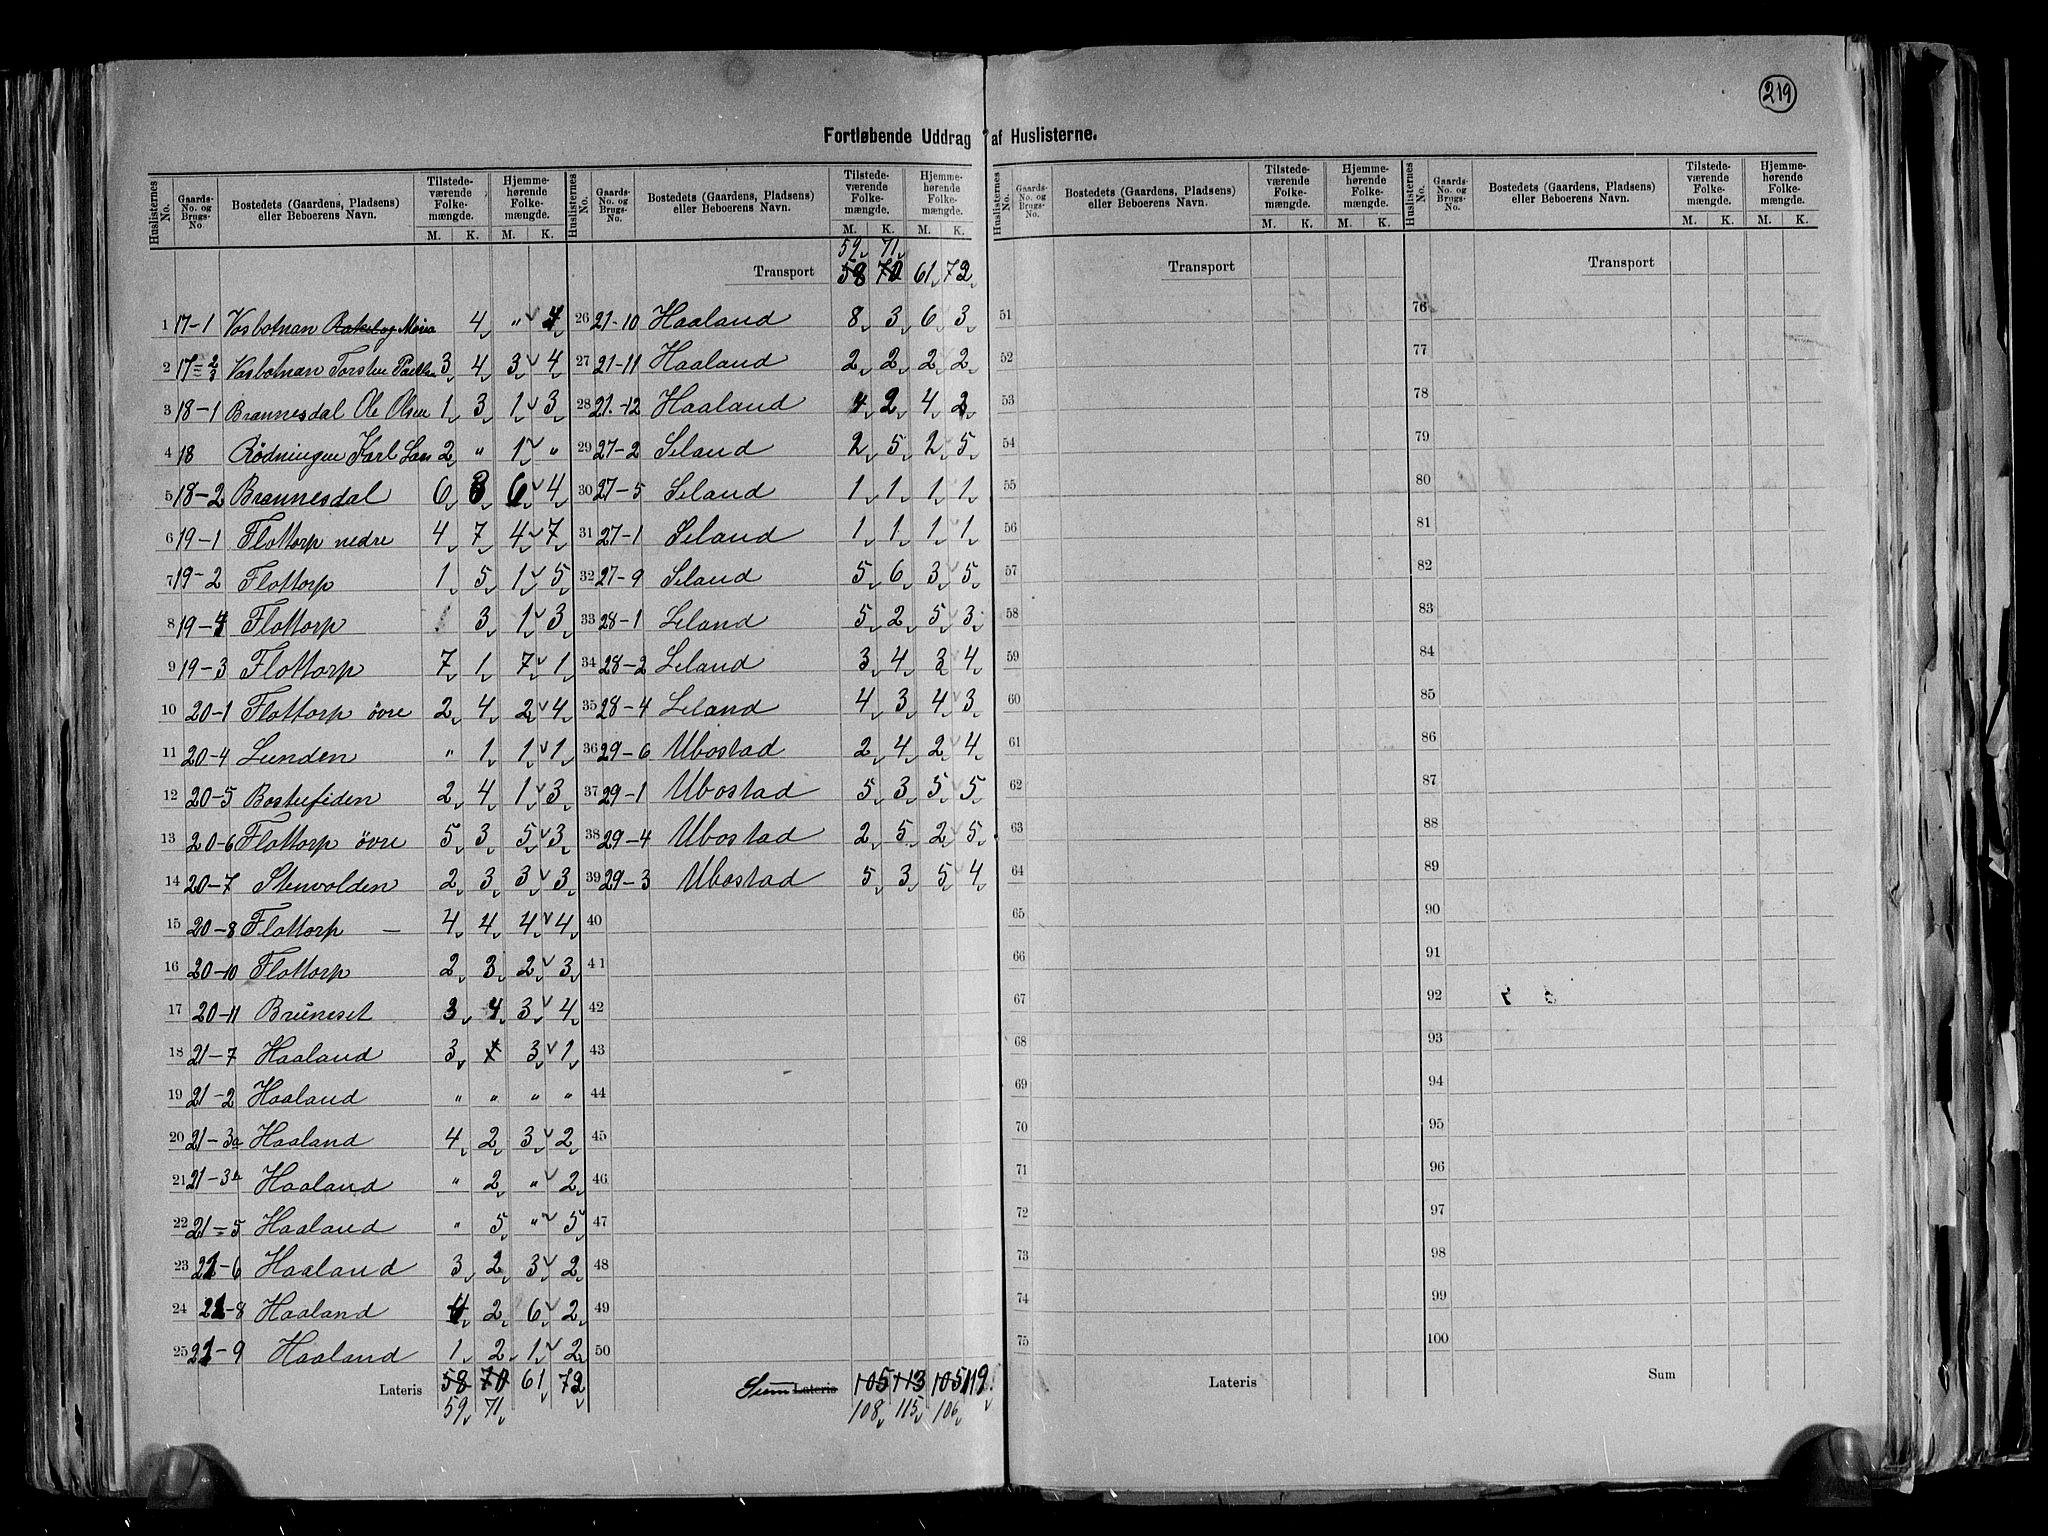 219
Fortløbende Uddrag af Huslisterne.
Huslisternes No. Gaards-No. og Brugs-No. Bostedets (Gaardens, Pladsens) eller Beboerens Navn. Tilstedeværende Folkemængde. M. K. Hjemmehørende Folkemængde. M. K.
1 17-1 Vosbotnan Rakel og Maria 4 " 4
2 17=2/3 Vosbotnan Torsten 3 4 3 4
3 18-1 Brannesdal Ole Olsen 1 3 1 3
4 18 Rødningen Karl Lars 2 " 1 "
5 18-2 Brannesdal 6 3 6 4
6 19-1 Flottorp nedre 4 7 4 7
7 19-2 Flottorp 1 5 1 5
8 19-4 Flottorp 1 3 1 3
9 19-3 Flottorp 7 1 7 1
10 20-1 Flottorp övre 2 4 2 4
11 20-4 Lunden " 1 1 1
12 20-5 Bostufiden 2 4 1 3
13 20-6 Flottorp övre 5 3 5 3
14 20-7 Stenvolden 2 3 3 3
15 20-8 Flottorp — 4 4 4 4
16 20-10 Flottorp 2 3 2 3
17 20-11 Bruneset 3 4 3 4
18 21-7 Haaland 3 1 3 1
19 21-2 Haaland " " " "
20 21-3a Haaland 4 2 3 2
21 21-3b Haaland " 2 " 2
22 21=5 Haaland " 5 " 5
23 21-6 Haaland 3 2 3 2
24 21-8 Haaland 4 2 6 2
25 21-9 Haaland 1 2 1 2
Lateris 58 70 61 72
59 71
Huslisternes No. Gaards-No. og Brugs-No. Bostedets (Gaardens, Pladsens) eller Beboerens Navn. Tilstedeværende Folkemængde. M. K. Hjemmehørende Folkemængde. M. K.
59 71
Transport 58 70 61 72
26 21-10 Haaland 8 3 6 3
27 21-11 Haaland 2 2 2 2
28 21-12 Haaland 4 2 4 2
29 27-2 Seland 2 5 2 5
30 27-5 Seland 1 1 1 1
31 27-1 Seland 1 1 1 1
32 27-9 Seland 5 6 3 5
33 28-1 Leland 5 2 5 3
34 28-2 Leland 3 4 3 4
35 28-4 Leland 4 3 4 3
36 29-6 Ubostad 2 4 2 4
37 29-1 Ubostad 5 3 5 5
38 29-4 Ubostad 2 5 2 5
39 29-3 Ubostad 5 3 5 4
40
41
42
43
44
45
46
47
48
49
50
Sum Lateris 105 113 105 119
108 115 106
Huslisternes No. Gaards-No. og Brugs-No. Bostedets (Gaardens, Pladsens) eller Beboerens Navn. Tilstedeværende Folkemængde. M. K. Hjemmehørende Folkemængde. M. K.
Transport
51
52
53
54
55
56
57
58
59
60
61
62
63
64
65
66
67
68
69
70
71
72
73
74
75
Lateris
Huslisternes No. Gaards-No. og Brugs-No. Bostedets (Gaardens, Pladsens) eller Beboerens Navn. Tilstedeværende Folkemængde. M. K. Hjemmehørende Folkemængde. M. K.
Transport
76
77
78
79
80
81
82
83
84
85
86
87
88
89
90
91
92
93
94
95
96
97
98
99
100
Sum